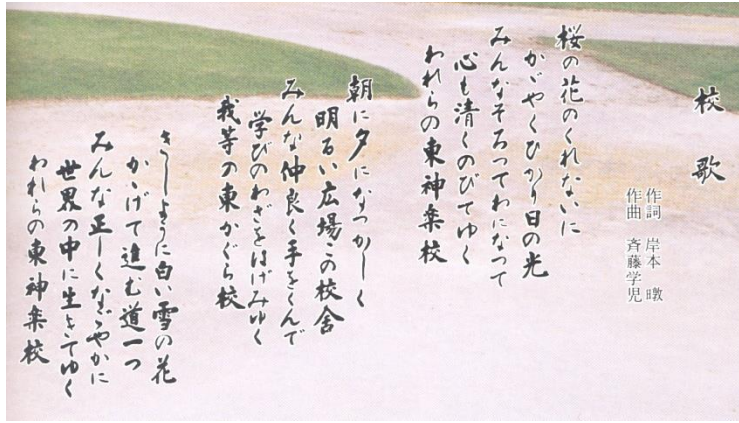 校歌
作詞 岸本 暾
作曲 斉藤学児
桜の花のくれないに
かゞやくひかり日の光
みんなそろつてわになつて
心も清くのびてゆく
われらの東神楽校
朝に夕になつかしく
明るい広場この校舎
みんな仲良く手をくんで
学びのわざをはげみゆく
我等の東かぐら校
きしように白い雪の花
かゝげて進む道一つ
みんな正しくなごやかに
世界の中に生きてゆく
われらの東神楽校